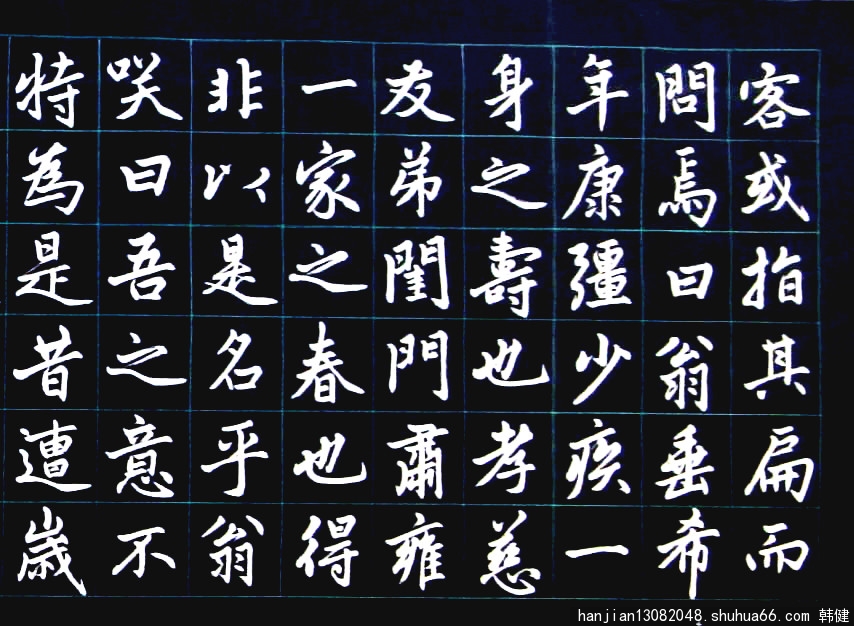 客或指其扁而
問焉曰翁垂希
年康彊少疾一
身之壽也孝慈
友弟閨門肅雍
一家之春也得
非以是名乎翁
咲曰吾之意不
特為是昔遭歲
hanjian13082048.shuhua66.com 韩健